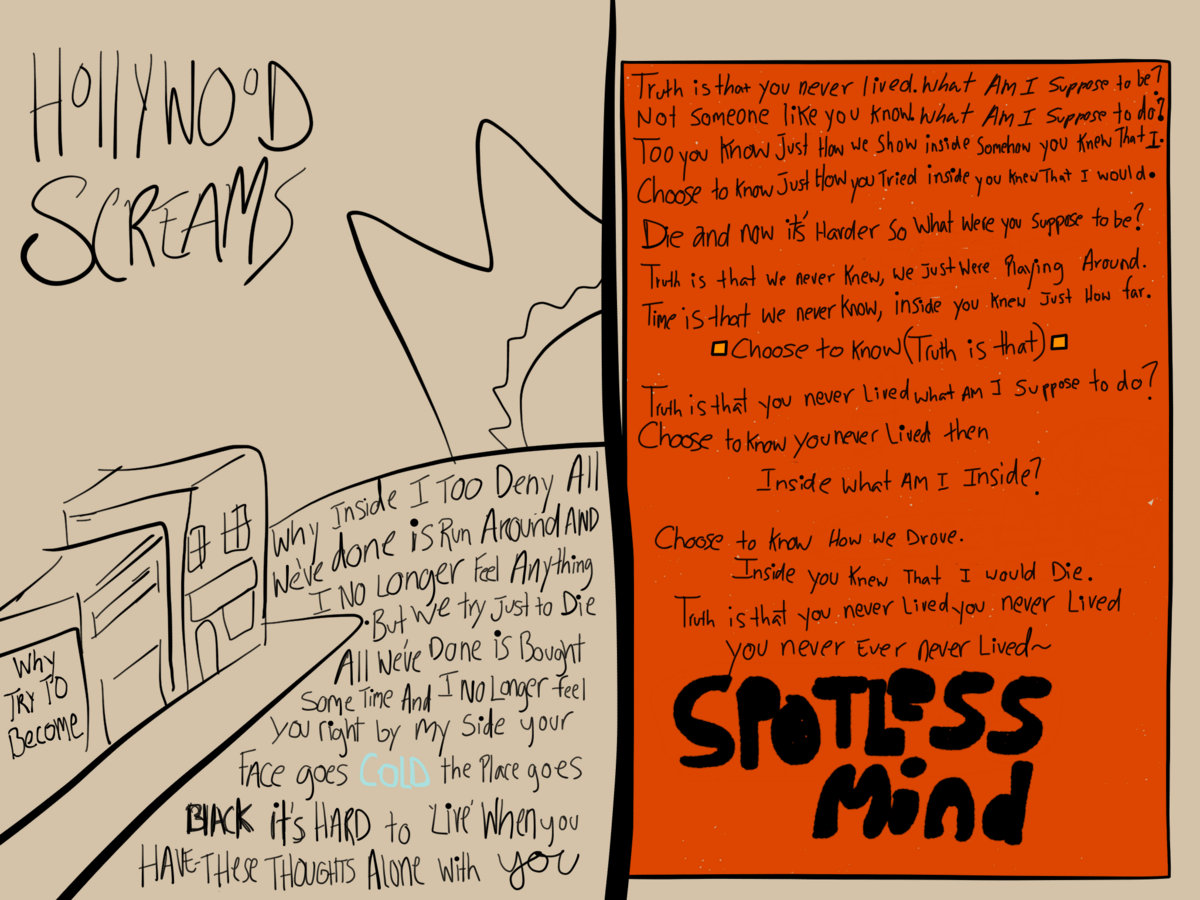 HOllYWOOD
SCREAMS
Why Inside I Too Deny All
We've done is Run Around AND
I No Longer Feel Anything
. But We try Just to Die
All We've Done is Bought
Some Time And I No Longer feel
you right by my Side your
FACE goes COLD the Place goes
BLACK it's HARD to 'Live' When you
HAVE These THOUGHTS Alone with you
Why
TRY TO
Become
Truth is that you never lived. What Am I Suppose to be?
Not Someone like you Know. What Am I Suppose to do?
Too you Know Just How we Show inside Somehow you Knew That I.
Choose to Know Just How you Tried inside you Knew That I would.
Die and now it's Harder So What Were you Suppose to be?
Truth is that we never Knew, we Just Were Playing Around.
Time is that we never Know, inside you Knew Just How far.
Choose to Know (Truth is that)
Truth is that you never Lived What Am I Suppose to do?
Choose to Know you never Lived then
Inside What Am I Inside?
Choose to Know How we Drove.
Inside you Knew That I would Die.
Truth is that you never Lived you never Lived
you never Ever never Lived~
SPOTLESS
Mind